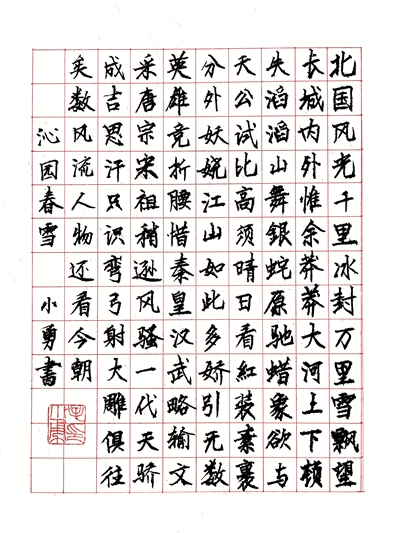 北国风光千里冰封万里雪飘望
长城内外惟余莽莽大河上下顿
失滔滔山舞銀蛇原驰蜡象欲与
天公试比高须晴日看紅装素裹
分外妖娆江山如此多娇引无数
英雄竞折腰惜秦皇汉武略输文
采唐宗宋祖稍逊风骚一代天骄
成吉思汗只识弯弓射大雕俱往
矣数风流人物还看今朝
沁园春雪 小勇書